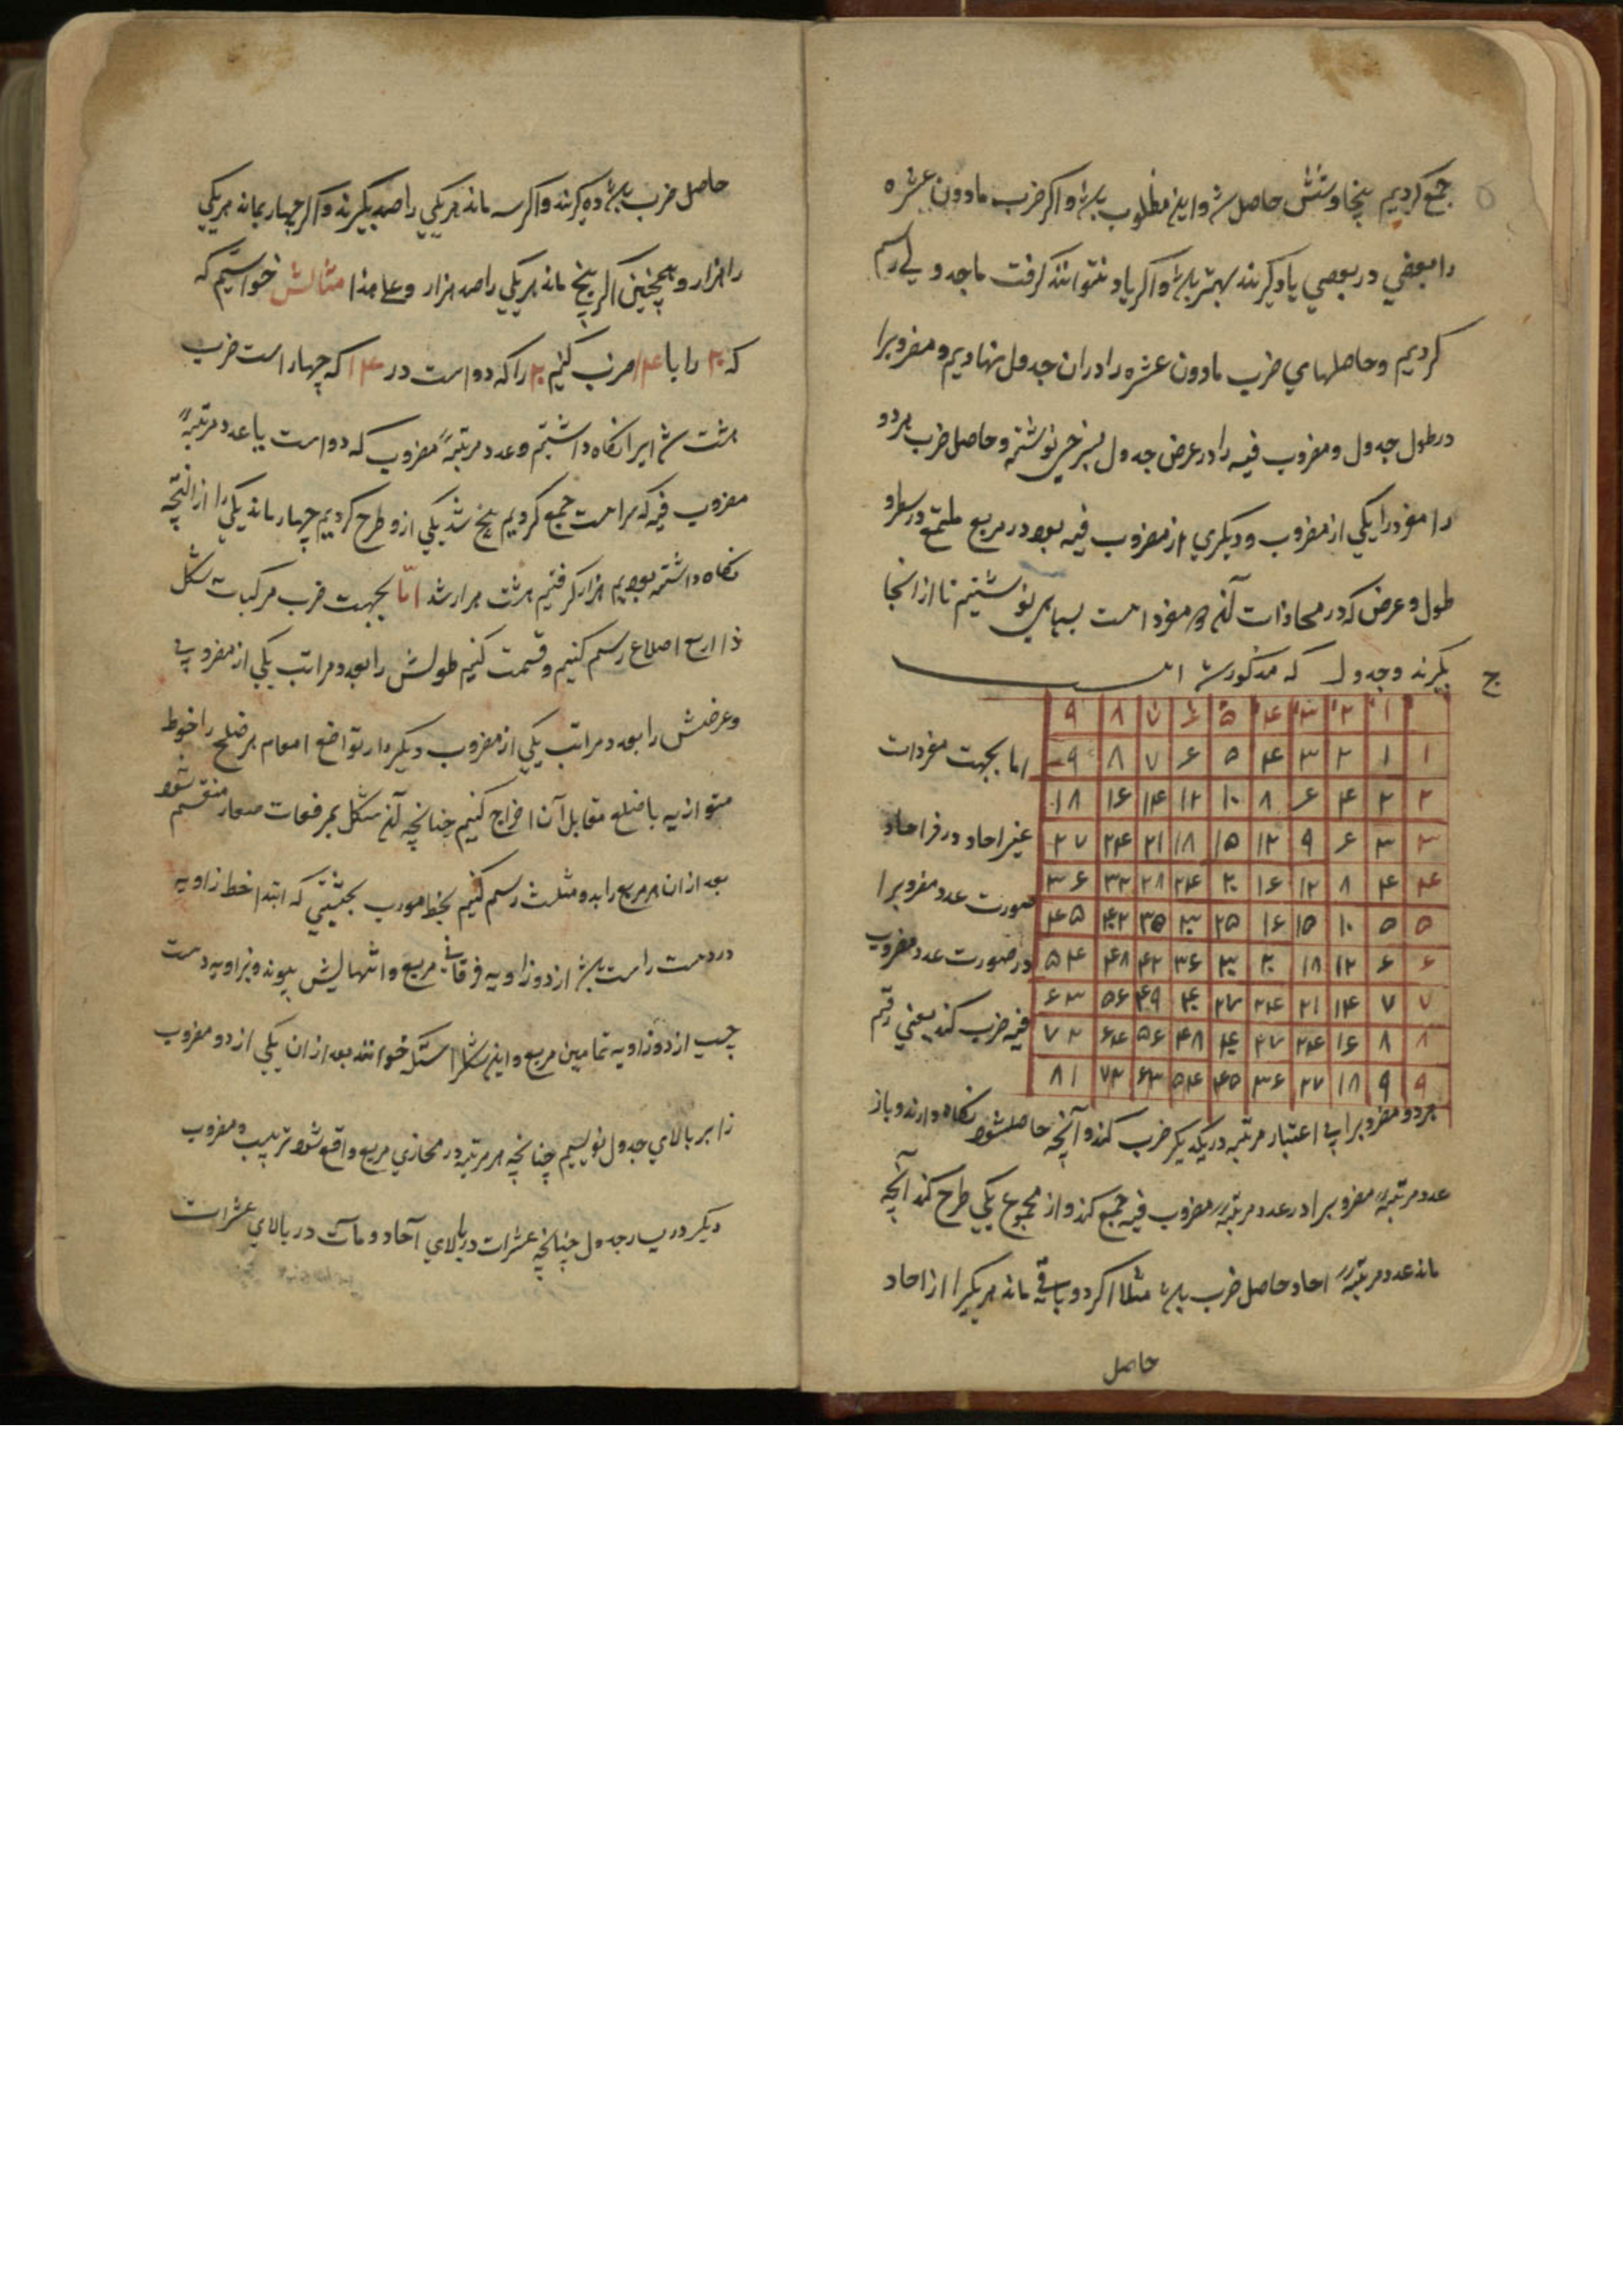 جمع کردیم پنجاه و شش حاصل شد و این مطلوب باشد و اگر ضرب مادون عشره
را بعضی در بعضی یاد گیرند بهتر باشد و اگر یاد نتوانند گرفت ما جدولی رسم
کردیم و حاصلهای ضرب مادون عشره را در ان جدول نهادیم و مضروبرا
در طول جدول و مضروب فیه را در عرض جدول بسرخی نوشته و حاصل ضرب هر دو
را مفرد را یکی از مضروب و دیگری از مضروب فیه بود در مربع ملتقی در سطر و
طول و عرض که در محاذات آن دو مفرد است بسیاهی نوشتیم تا از انجا
بگیرند و جدول که مذکور شد اینست
ج
۹ ۸ ۷ ۶ ۵ ۴ ۳ ۲ ۱
۹ ۸ ۷ ۶ ۵ ۴ ۳ ۲ ۱ ۱
۱۸ ۱۶ ۱۴ ۱۲ ۱۰ ۸ ۶ ۴ ۲ ۲
۲۷ ۲۴ ۲۱ ۱۸ ۱۵ ۱۲ ۹ ۶ ۳ ۳
۳۶ ۳۲ ۲۸ ۲۴ ۲۰ ۱۶ ۱۲ ۸ ۴ ۴
۴۵ ۴۰ ۳۵ ۳۰ ۲۵ ۱۶ ۱۵ ۱۰ ۵ ۵
۵۴ ۴۸ ۴۲ ۳۶ ۳۰ ۲۰ ۱۸ ۱۲ ۶ ۶
۶۳ ۵۶ ۴۹ ۴۰ ۲۷ ۲۴ ۲۱ ۱۴ ۷ ۷
۷۲ ۶۴ ۵۶ ۴۸ ۴۰ ۲۷ ۲۴ ۱۶ ۸ ۸
۸۱ ۷۲ ۶۳ ۵۴ ۴۵ ۳۶ ۲۷ ۱۸ ۹ ۹
اما بجهت مفردات
غیر احاد در غیر احاد
صورت عدد مضروبرا
در صورت عدد مضروب
فیه ضرب کند یعنی رقم
هر دو مضروبرا بی اعتبار مرتبه در یکدیگر ضرب کند و آنچه حاصل شود نگاه دارند و باز
عدد مرتبهٔ مضروبرا در عدد مرتبهٔ مضروب فیه جمع کند و از مجموع یکی طرح کند آنچه
ماند عدد مرتبهٔ احاد حاصل ضرب باشد مثلا اگر دو باقی ماند هر یکرا از احاد
حاصل
حاصل ضرب باشد ده گیرند و اگر سه ماند هر یکی را صد بگیرند و اگر چهار بماند هر یکی
را هزار و همچنین اگر پنج ماند هر یکی را صد هزار و علی هذا مثالش خواستیم که
که ۲۰ را با ضرب کنیم ۲۰ را که دو است در که چهار است ضرب
هشت شد اینرا نگاه داشتیم و عدد مرتبهٔ مضروب که دو است با عدد مرتبهٔ
مضروب فیه که سه است جمع کردیم پنج شد یکی ازو طرح کردیم چهار ماند یکی را از انچه
نگاه داشته بودیم هزار گرفتیم هشت هزار شد اما بجهت ضرب مرکبات شکل
ذا اربع اضلاع رسم کنیم و قسمت کنیم طولش را بعدد مراتب یکی از مضروبین
و عرضش را بعدد مراتب یکی از مضروب دیگر و از مواضع اقسام هر ضلع را خطوط
متوازیه با ضلع مقابل آن اخراج کنیم چنانچه آن شکل بمربعات صغار منقسم شود
بعد از ان هر مربع را بدو مثلث رسم کنیم بخط مورب بحیثیتی که ابتدا خط زاویه
در دست راست باشد از دو زاویه فوقانی مربع و انتهایش بپیوند و بزاویه دست
چپ از دو زاویه تحتانی مربع و این شکل را شبکه خوانند بعد از ان یکی از دو مضروب
را بر بالای جدول نویسیم چنانچه هر مرتبه در محاذی مربع واقع شود بترتیب و مضروب
دیگر در یسار جدول چنانچه عشرات در بالای آحاد و مآت در بالای عشرات